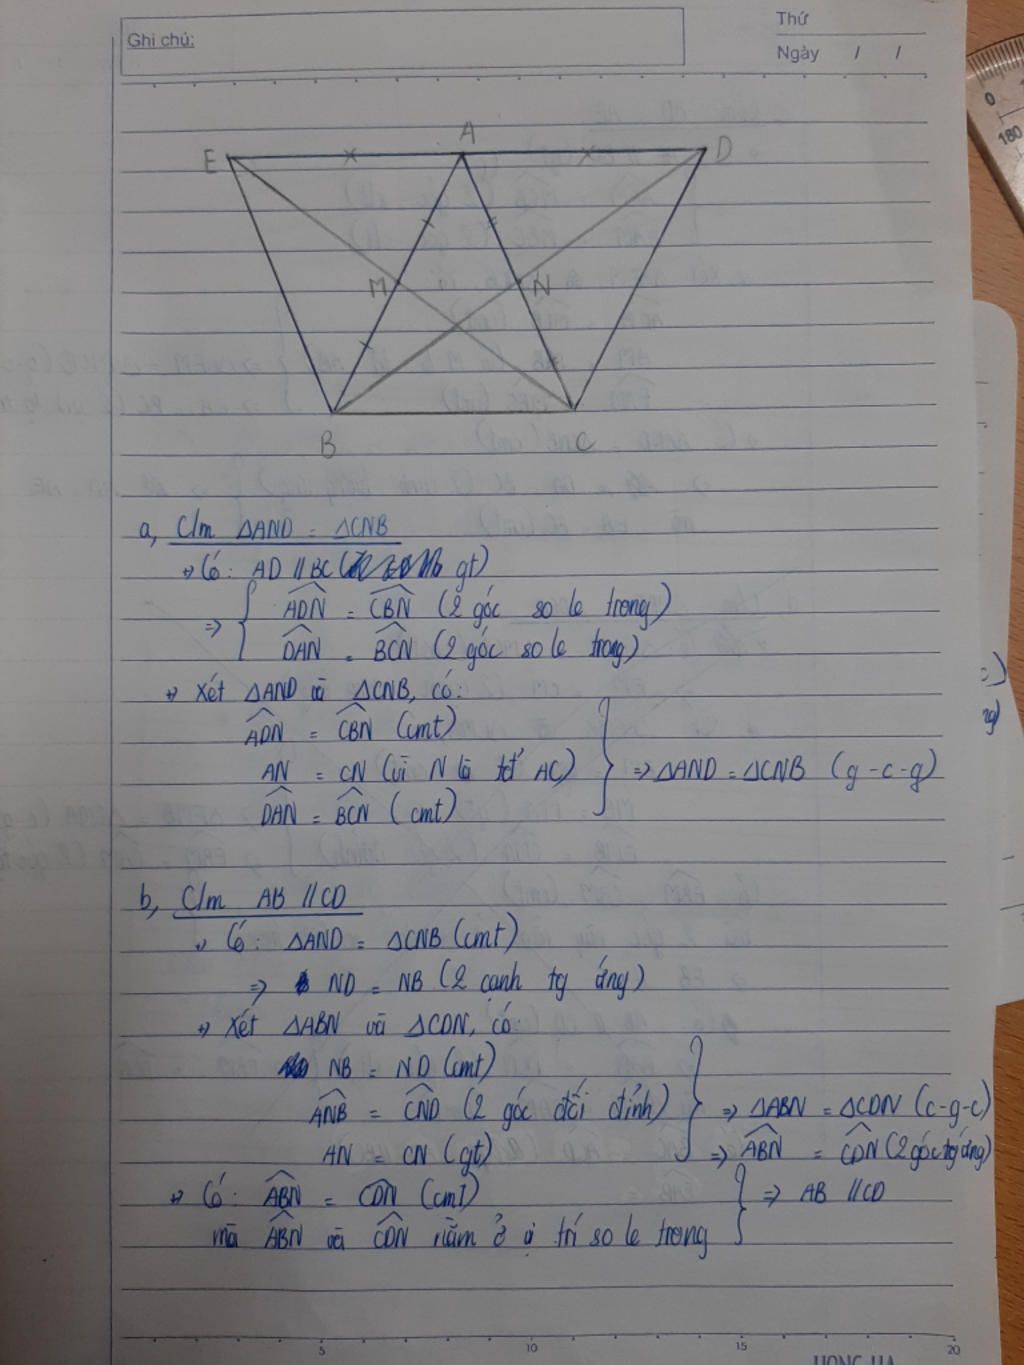 Ghi chú:
Thứ
Ngày / /
0
180
E A D
M N
B C
a, C/m ΔAND = ΔCNB
Có: AD // BC ( gt)
=> { ADN = CBN (2 góc so le trong)
DAN = BCN (2 góc so le trong)
Xét ΔAND và ΔCNB, có:
ADN = CBN (cmt)
AN = CN (vì N là tđ AC) } => ΔAND = ΔCNB (g-c-g)
DAN = BCN (cmt)
b, C/m AB // CD
Có: ΔAND = ΔCNB (cmt)
=> ND = NB (2 cạnh tg ứng)
Xét ΔABN và ΔCDN, có:
NB = ND (cmt)
ANB = CND (2 góc đối đỉnh) } => ΔABN = ΔCDN (c-g-c)
AN = CN (gt) => ABN = CDN (2 góc tg ứng)
Có: ABN = CDN (cmt) } => AB // CD
mà ABN và CDN nằm ở vị trí so le trong
5 10 15 20
HONG HA